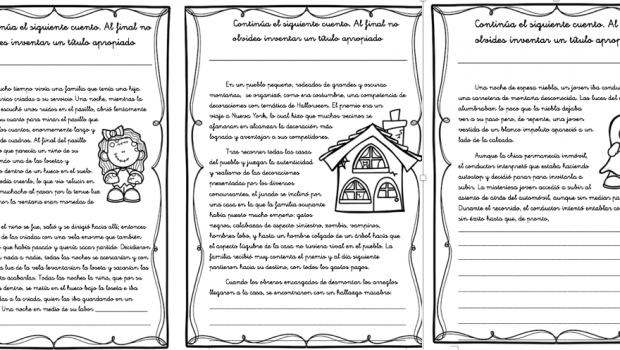 núa el siguiente cuento. Al final no
des inventar un título apropiado
ucho tiempo vivía una familia que tenía una hija
arias criadas a su servicio. Una noche, mientras la
escuchó unos ruidos en el pasillo, abrió lentamente
su cuarto para mirar el pasillo que
los cuartos, enormemente largo y
de cuadros. Al final del pasillo
lo que parecía un niño de su
ando una de las losetas y
dentro de un hueco en el suelo.
edía creerlo, lo que vio relucir en
muchacho al pasar por la tenue luz
por la ventana eran monedas de
el niño se fue, salió y se dirigió hacia allí; entonces
de las criadas con una vela enorme que también
que había pasado y quería sacar partida. Decidieron
a nada a nadie, todas las noches se acercarían y con
a luz de la vela levantarían la loseta y sacarían las
ta acabarlas. Todas las noches la niña, que por su
dentro, se metía en el hueco bajo la loseta e iba
das a la criada, quien las iba guardando en un
Una noche en medio de su labor
Continúa el siguiente cuento. Al final no
olvides inventar un título apropiado
En un pueblo pequeño, rodeados de grandes y oscuras
montañas, se organizó, como era costumbre, una competencia de
decoraciones con temática de Halloween. El premio era un
viaje a Nueva York, lo cual hizo que muchos vecinos se
afanaran en alcanzar la decoración más
lograda y aventajar a sus competidores.
Tras recorrer todas las casas
del pueblo y juzgar la autenticidad
y realismo de las decoraciones
presentadas por los diversos
concursantes, el jurado se inclinó por
una casa en la que la familia ocupante
había puesto mucho empeño: gatos
negros, calabazas de aspecto siniestro, zombis, vampiros,
hombres lobo, y hasta un hombre colgado de un árbol hacía que
el aspecto lúgubre de la casa no tuviera rival en el pueblo. La
familia recibió muy contenta el premio y al día siguiente
partieron hacia su destino, con todos los gastos pagos.
Cuando los obreros encargados de desmontar los arreglos
llegaron a la casa, se encontraron con un hallazgo macabro:
Continúa el siguiente cuento. Al
olvides inventar un título aprop
Una noche de espesa niebla, un joven iba conduc
una carretera de montaña desconocida. Las luces del
alumbraban poco lo que la niebla dejaba
ver a su paso pero, de repente, una joven
vestida de un blanco impoluto apareció a un
lado de la calzada.
Aunque la chica permanecía inmóvil,
el conductor interpretó que estaba haciendo
autostop y decidió parar para invitarla a
subir. La misteriosa joven accedió a subir al
asiento de atrás del automóvil, aunque sin mediar pa
Durante el recorrido, el conductor intentó entablar co
sin éxito hasta que, de pronto,